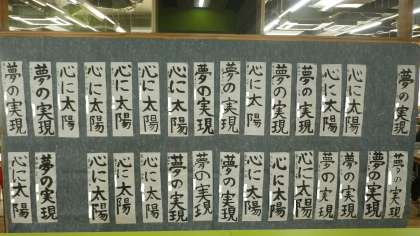 夢の実現
夢の実現
心に太陽
心に太陽
心に太陽
心に太陽
心に太陽
夢の実現
夢の実現
心に太陽
夢の実現
夢の実現
心に太陽
心に太陽
夢の実現
心に太陽
夢の実現
心に太陽
心に太陽
心に太陽
夢の実現
夢の実現
夢の実現
心に太陽
心に太陽
心に太陽
夢の実現
夢の実現
夢の実現
夢の実現